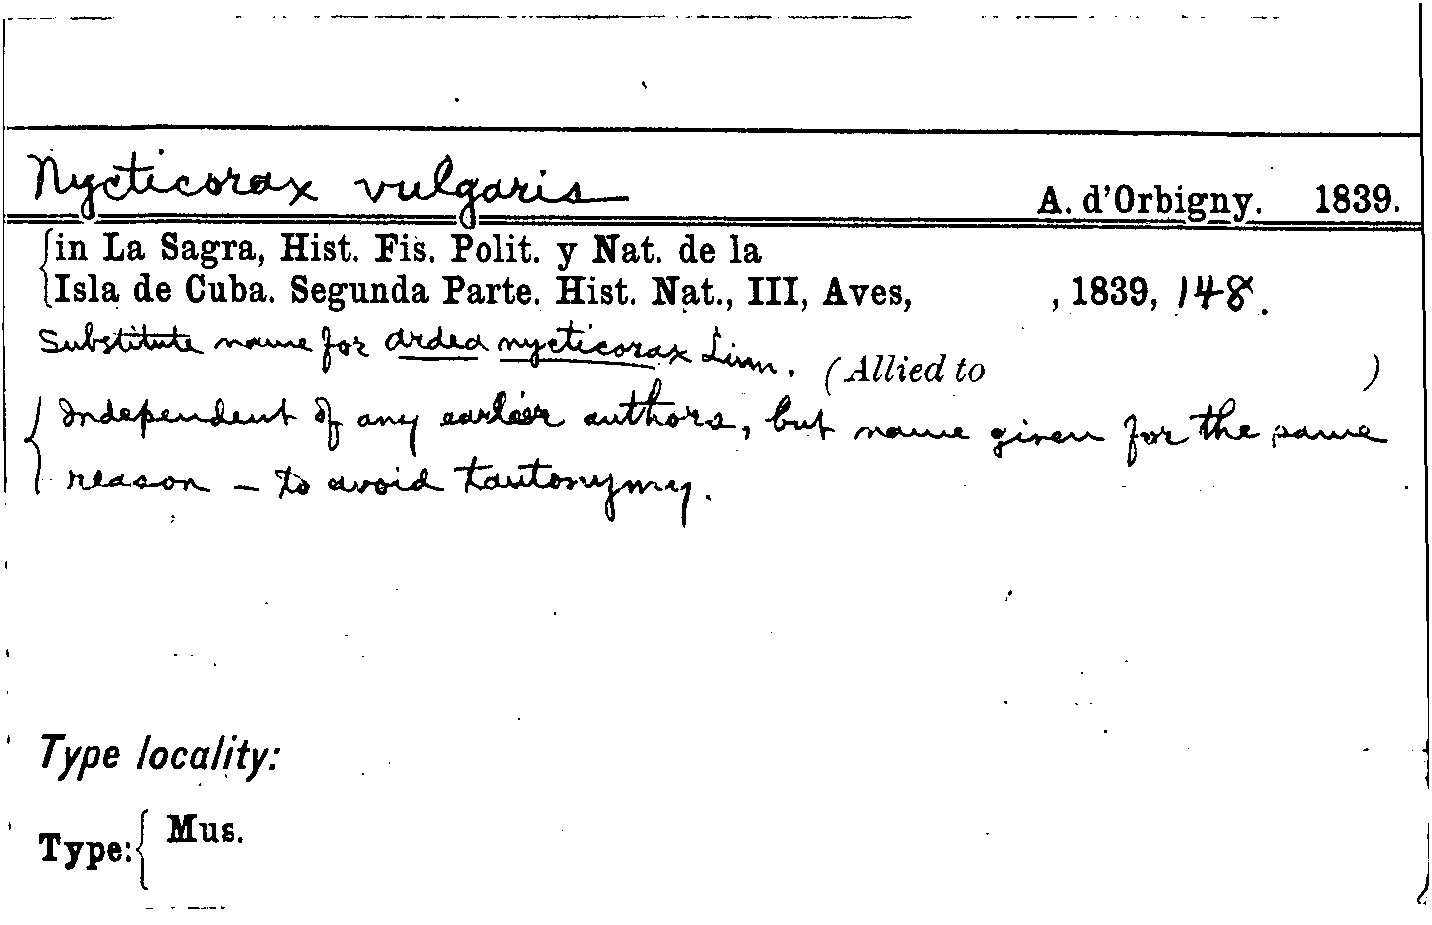 Nycticorax vulgaris A. d'Orbigny. 1839.
in La Sagra, Hist. Fis. Polit. y Nat. de la
Isla de Cuba. Segunda Parte. Hist. Nat., III, Aves, , 1839, 148.
Substitute name for Ardea nycticorax Linn. (Allied to )
Independent of any earlier authors, but name given for the same
reason – to avoid tautonymy.
Type locality:
Type: Mus.